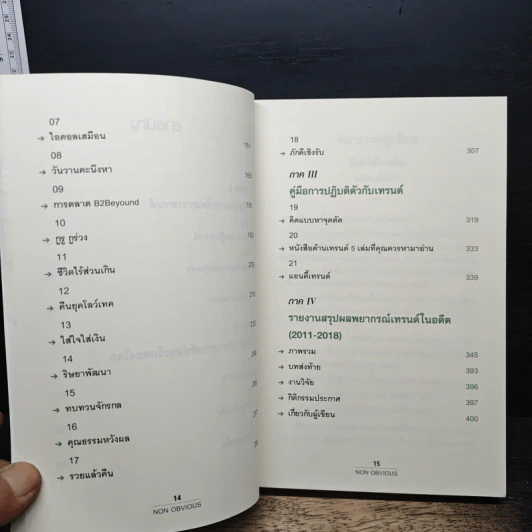 07
→ ไอดอลเสมือน
08
→ วันวานคะนึงหา
09
→ การตลาด B2Beyound
10
→ กูรู กูร่วง
11
→ ชีวิตไร้ส่วนเกิน
12
→ คืนยุคโลว์เทค
13
→ ใส่ใจใส่เงิน
14
→ ริษยาพัฒนา
15
→ ทบทวนจักรกล
16
→ คุณธรรมหวังผล
17
→ รวยแล้วคืน
14
NON OBVIOUS
18
→ ภักดีเชิงรับ 307
ภาค III
คู่มือการปฏิบัติตัวกับเทรนด์
19
→ คิดแบบหาจุดตัด 319
20
→ หนังสือด้านเทรนด์ 5 เล่มที่คุณควรหามาอ่าน 333
21
→ แอนตี้เทรนด์ 339
ภาค IV
รายงานสรุปผลพยากรณ์เทรนด์ในอดีต
(2011-2018)
→ ภาพรวม 345
→ บทส่งท้าย 393
→ งานวิจัย 396
→ กิตติกรรมประกาศ 397
→ เกี่ยวกับผู้เขียน 400
15
NON OBVIOUS